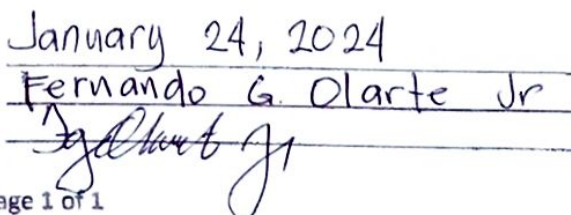 January 24, 2024
Fernando G. Olarte Jr
age 1 of 1